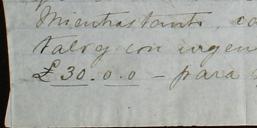 Mientrastanto, co
tal y con urgen
£30.0.0 – para